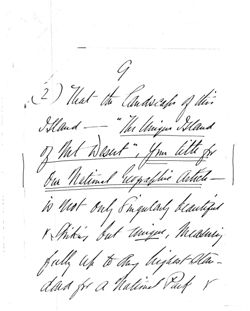 9
(2) That the landscape of this
Island — "The Unique Island
of Mt Desert", Your title for
Our National Geographic Article —
is not only singularly beautiful
& striking but unique, measuring
fully up to any highest stan-
dard for a National Park &